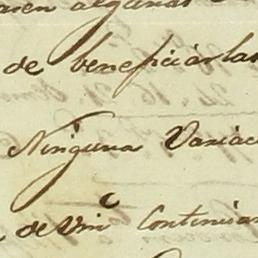 algunas
de beneficiarlas
Ninguna Variac
de Vini Contenian